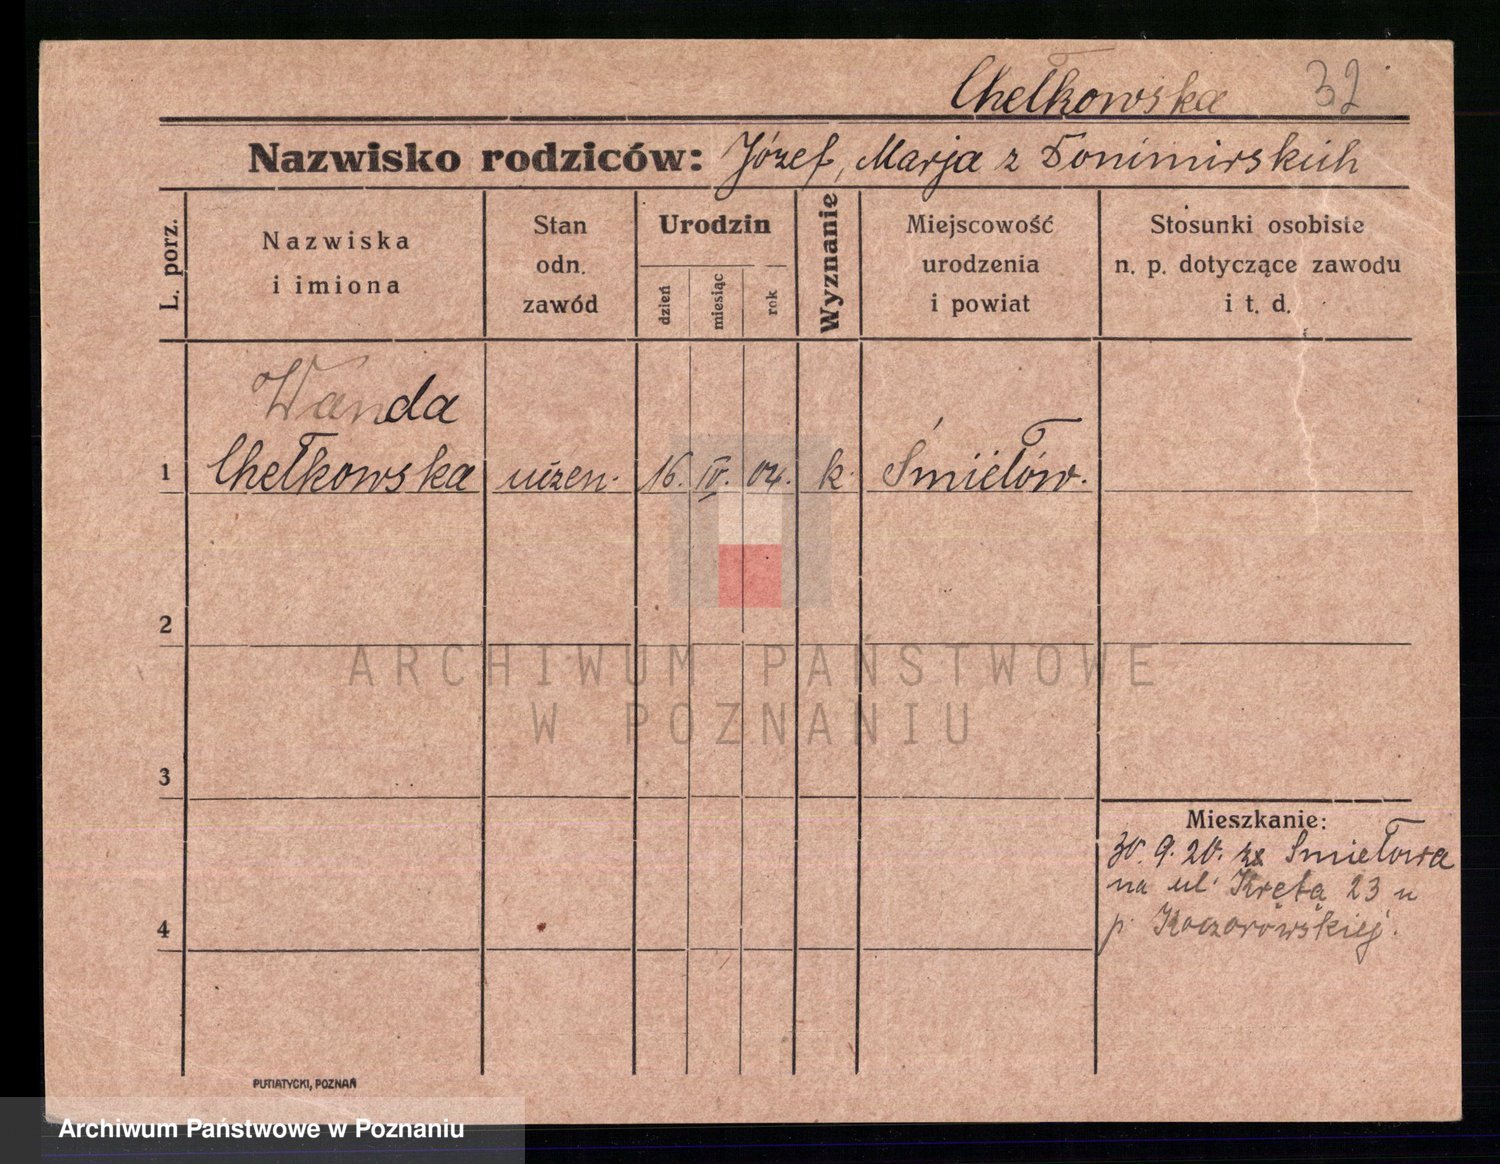 Chełkowska 32
Nazwisko rodziców: Józef, Marja z Donimirskich
L. porz.
Nazwiska i imiona
Stan odn. zawód
Urodzin
dzień
miesiąc
rok
Wyznanie
Miejscowość urodzenia i powiat
Stosunki osobiste n. p. dotyczące zawodu i t. d.
Wanda
1 Chełkowska uczen. 16. IV. 04. k. Śmiełów.
2
3
4
Mieszkanie:
30. 9. 20. ze Śmiełowa
na ul. Kręta 23 u
p. Koczorowskiej.
PUTIATYCKI, POZNAŃ
ARCHIWUM PAŃSTWOWE
W POZNANIU
Archiwum Państwowe w Poznaniu